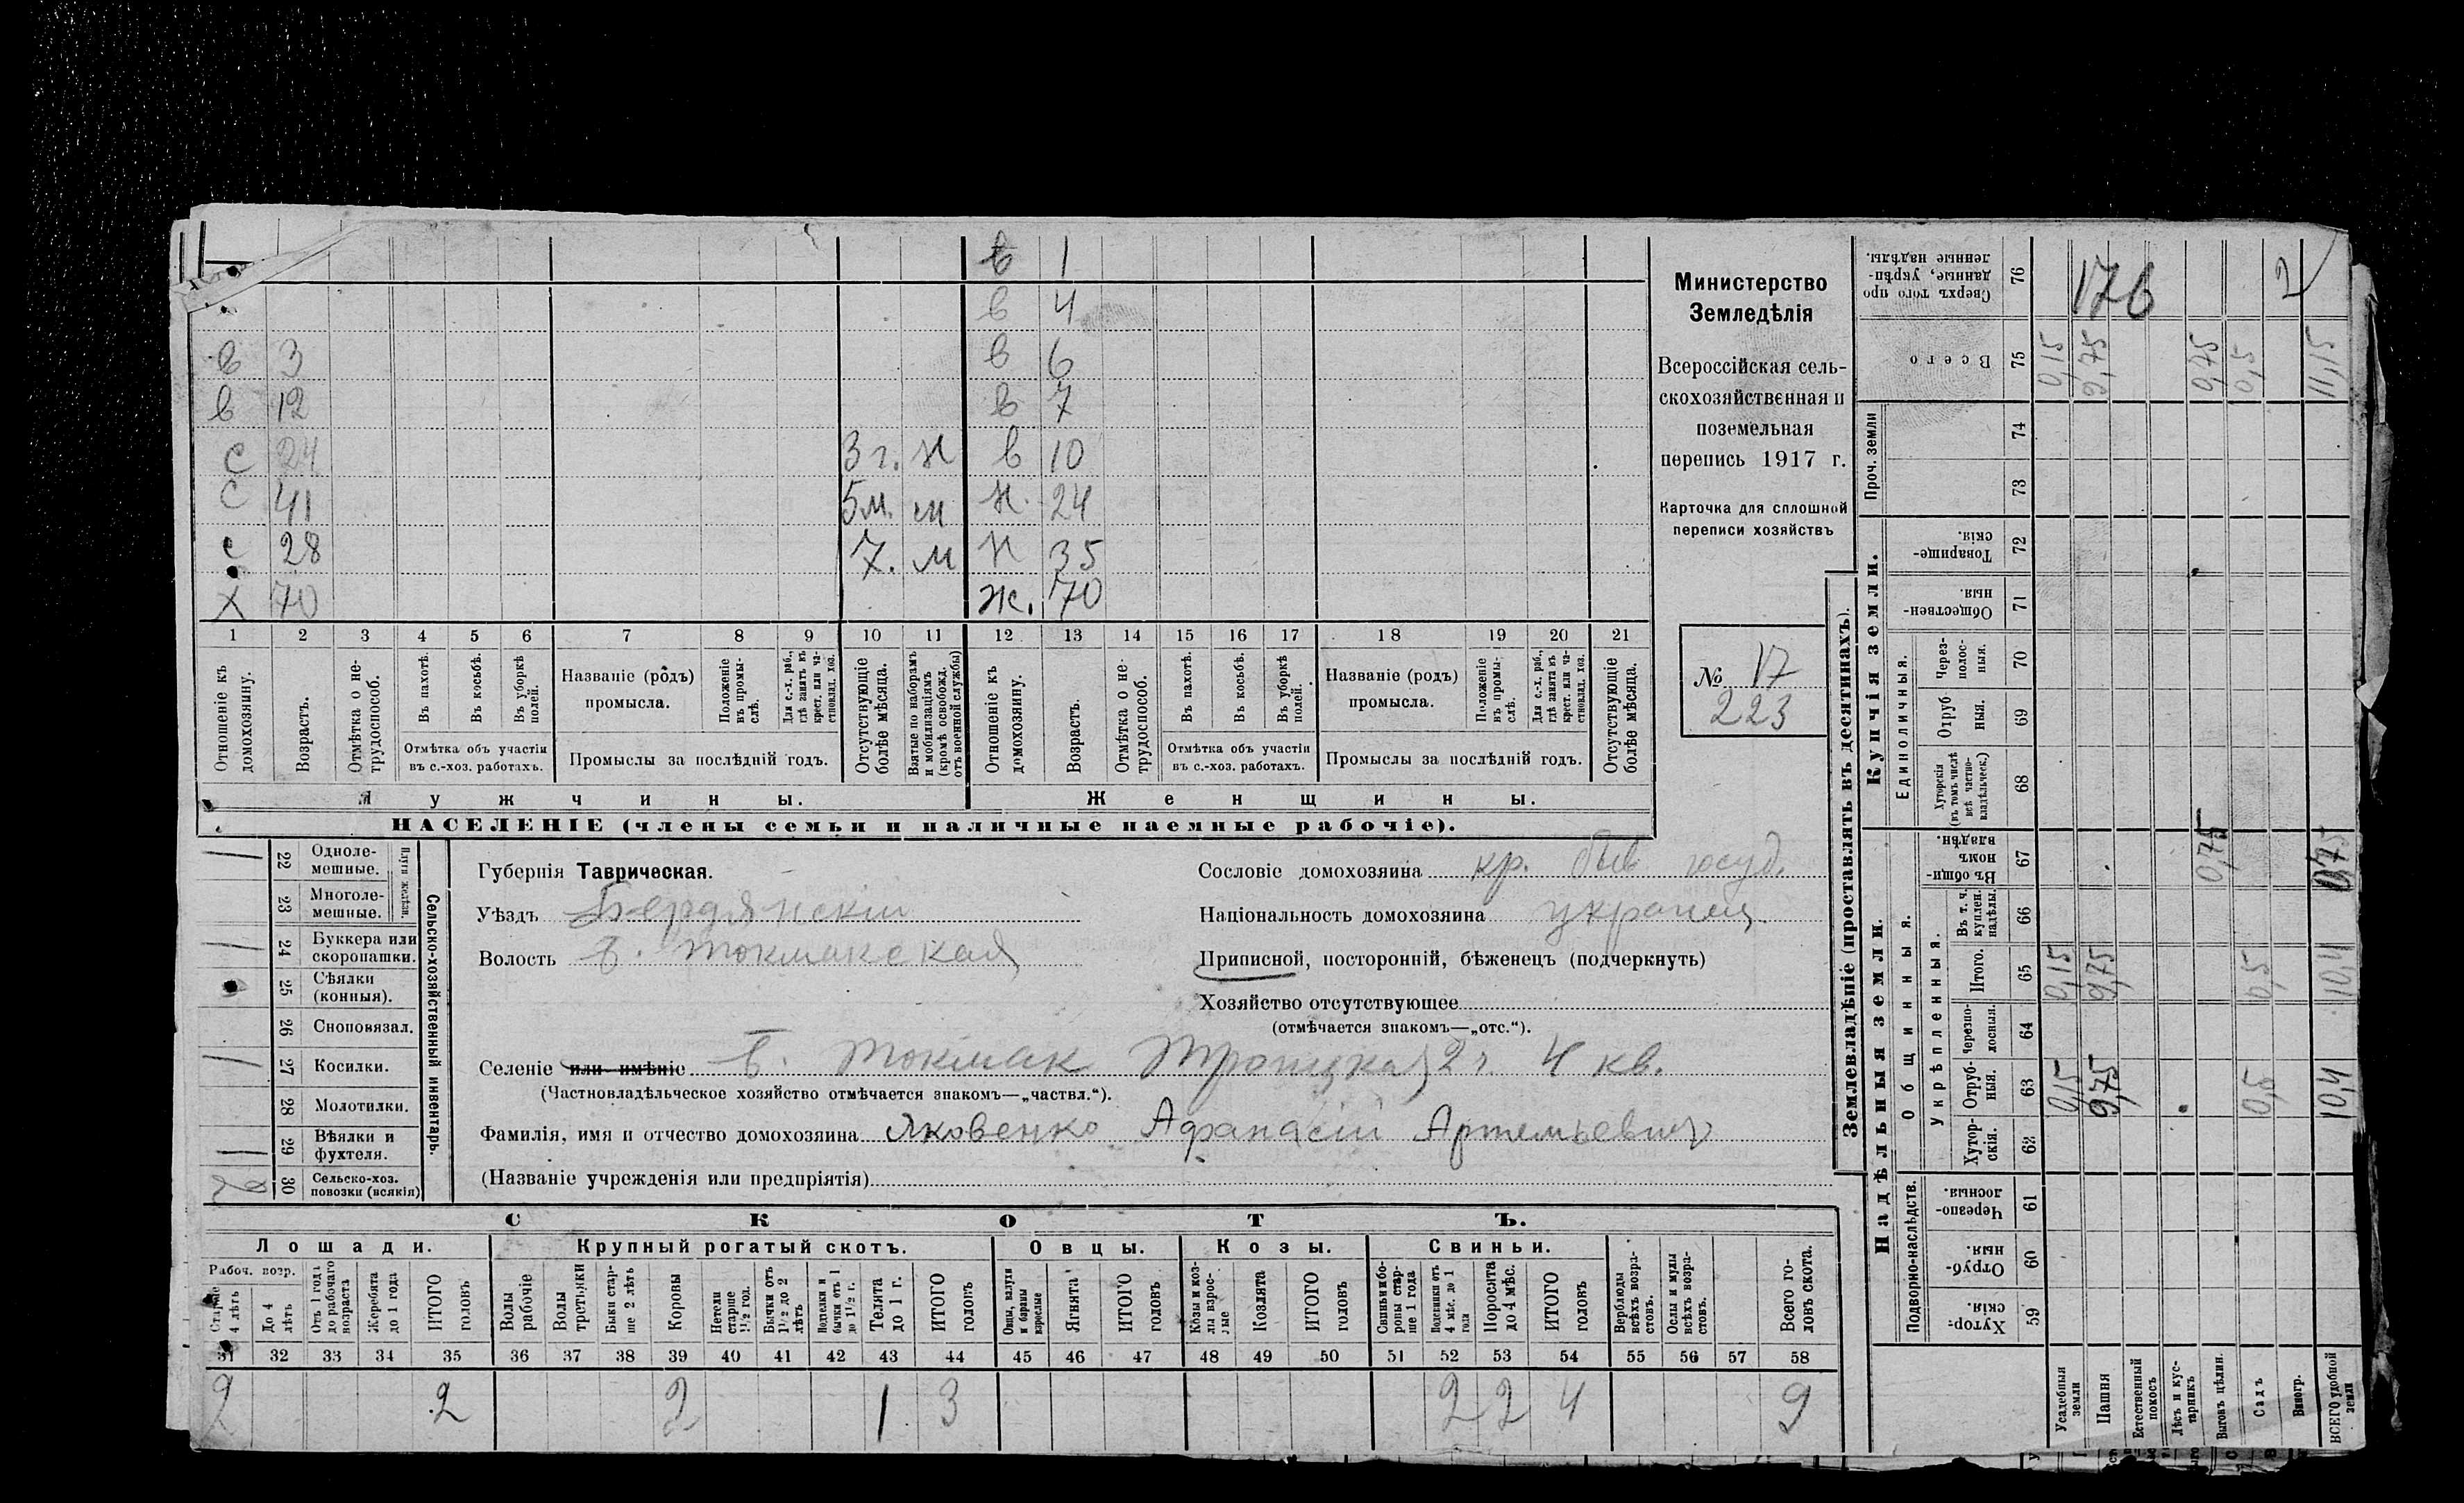 в 1
в 4
в 3 в 6
в 12 в 7
с 24 3 г. н в 10
с 41 5 м. м н. 24
с 28 7. м н 35
х 70 ж. 70
1 2 3 4 5 6 7 8 9 10 11 12 13 14 15 16 17 18 19 20 21
Отношеніе къ домохозяину.
Возрастъ.
Отмѣтка о не-трудоспособ.
Въ пахотѣ.
Въ косьбѣ.
Въ уборкѣ полей.
Отмѣтка объ участіи
въ с.-хоз. работахъ.
Названіе (родъ)
промысла.
Положеніе въ промы-слѣ.
Для с.-х. раб., гдѣ занятъ въ крест. или ча-стновлад. хоз.
Промыслы за послѣдній годъ.
Отсутствующіе болѣе мѣсяца.
Взятые по наборамъ и мобилизаціямъ (кромѣ освобожд. отъ военной службы)
Отношеніе къ домохозяину.
Возрастъ.
Отмѣтка о не-трудоспособ.
Въ пахотѣ.
Въ косьбѣ.
Въ уборкѣ полей.
Отмѣтка объ участіи
въ с.-хоз. работахъ.
Названіе (родъ)
промысла.
Положеніе въ промы-слѣ.
Для с.-х. раб., гдѣ занята въ крест. или ча-стновлад. хоз.
Промыслы за послѣдній годъ.
Отсутствующіе болѣе мѣсяца.
Мужчины. Женщины.
НАСЕЛЕНІЕ (члены семьи и наличные наемные рабочіе).
Министерство
Земледѣлія
Всероссійская сель-
скохозяйственная и
поземельная
перепись 1917 г.
Карточка для сплошной
переписи хозяйствъ
№ 17
223
Сельско-хозяйственный инвентарь.
Плуги желѣзн.
1 22 Одноле-мешные.
23 Многоле-мешные.
1 24 Буккера или скоропашки.
25 Сѣялки (конныя).
26 Сноповязал.
1 27 Косилки.
28 Молотилки.
1 29 Вѣялки и фухтеля.
2 30 Сельско-хоз. повозки (всякія)
Губернія Таврическая.
Уѣздъ Бердянскій
Волость Б. Токмакская
Сословіе домохозяина кр. быв госуд.
Національность домохозяина украинец
Приписной, посторонній, бѣженецъ (подчеркнуть)
Хозяйство отсутствующее
(отмѣчается знакомъ—„отс.“).
Селеніе или имѣніе Б. Токмак Троицкая 2 ч. 4 кв.
(Частновладѣльческое хозяйство отмѣчается знакомъ—„частвл.“).
Фамилія, имя и отчество домохозяина Яковенко Афанасій Артемьевич
(Названіе учрежденія или предпріятія)
СКОТЪ.
Лошади. Крупный рогатый скотъ. Овцы. Козы. Свиньи.
Рабоч. возр.
Старше 4 лѣтъ
До 4 лѣтъ
Отъ 1 года до рабочаго возраста
Жеребята до 1 года
ИТОГО головъ
Волы рабочіе
Волы третьяки
Быки стар-ше 2 лѣтъ
Коровы
Нетели старше 1½ год.
Бычки отъ 1½ до 2 лѣтъ
Подтелки и бычки отъ 1 до 1½ г.
Телята до 1 г.
ИТОГО головъ
Овцы, валухи и бараны взрослые
Ягнята
ИТОГО головъ
Козы и коз-лы взрос-лые
Козлята
ИТОГО головъ
Свиньи и бо-ровы стар-ше 1 года
Подсвинки отъ 4 мѣс. до 1 года
Поросята до 4 мѣс.
ИТОГО головъ
Верблюды всѣхъ возра-стовъ.
Ослы и мулы всѣхъ возра-стовъ.
Всего го-ловъ скота.
31 32 33 34 35 36 37 38 39 40 41 42 43 44 45 46 47 48 49 50 51 52 53 54 55 56 57 58
2 2 2 1 3 2 2 4 9
Землевладѣніе (проставлять въ десятинахъ).
Купчія земли.
Надѣльныя земли.
Сверхъ того про-данные, укрѣп-ленные надѣлы. 76 176 2
Всего 75 0,15 9,75 0,75 0,5 11,15
Проч. земли 74
73
Товарище-скія. 72
Обществен-ныя. 71
Единоличныя.
Через-полос-ныя. 70
Отруб-ныя. 69
Хуторскія (въ томъ числѣ всѣ частно-владѣльческ.) 68
Общинныя.
Въ общин-номъ владѣн. 67 0,75 0,75
Укрѣпленныя.
Въ т. ч. куплен. надѣлы 66
Итого. 65 0,15 9,75 0,5 10,4
Черезпо-лосныя. 64
Отруб-ныя. 63 0,15 9,75 0,5 10,4
Хутор-скія. 62
Подворно-наслѣдств.
Черезпо-лосныя. 61
Отруб-ныя. 60
Хутор-скія. 59
Усадебныя земли
Пашня
Естественный покосъ
Лѣсъ и кус-тарникъ
Выгонъ цѣлин.
Садъ
Виногр.
ВСЕГО удобной земли